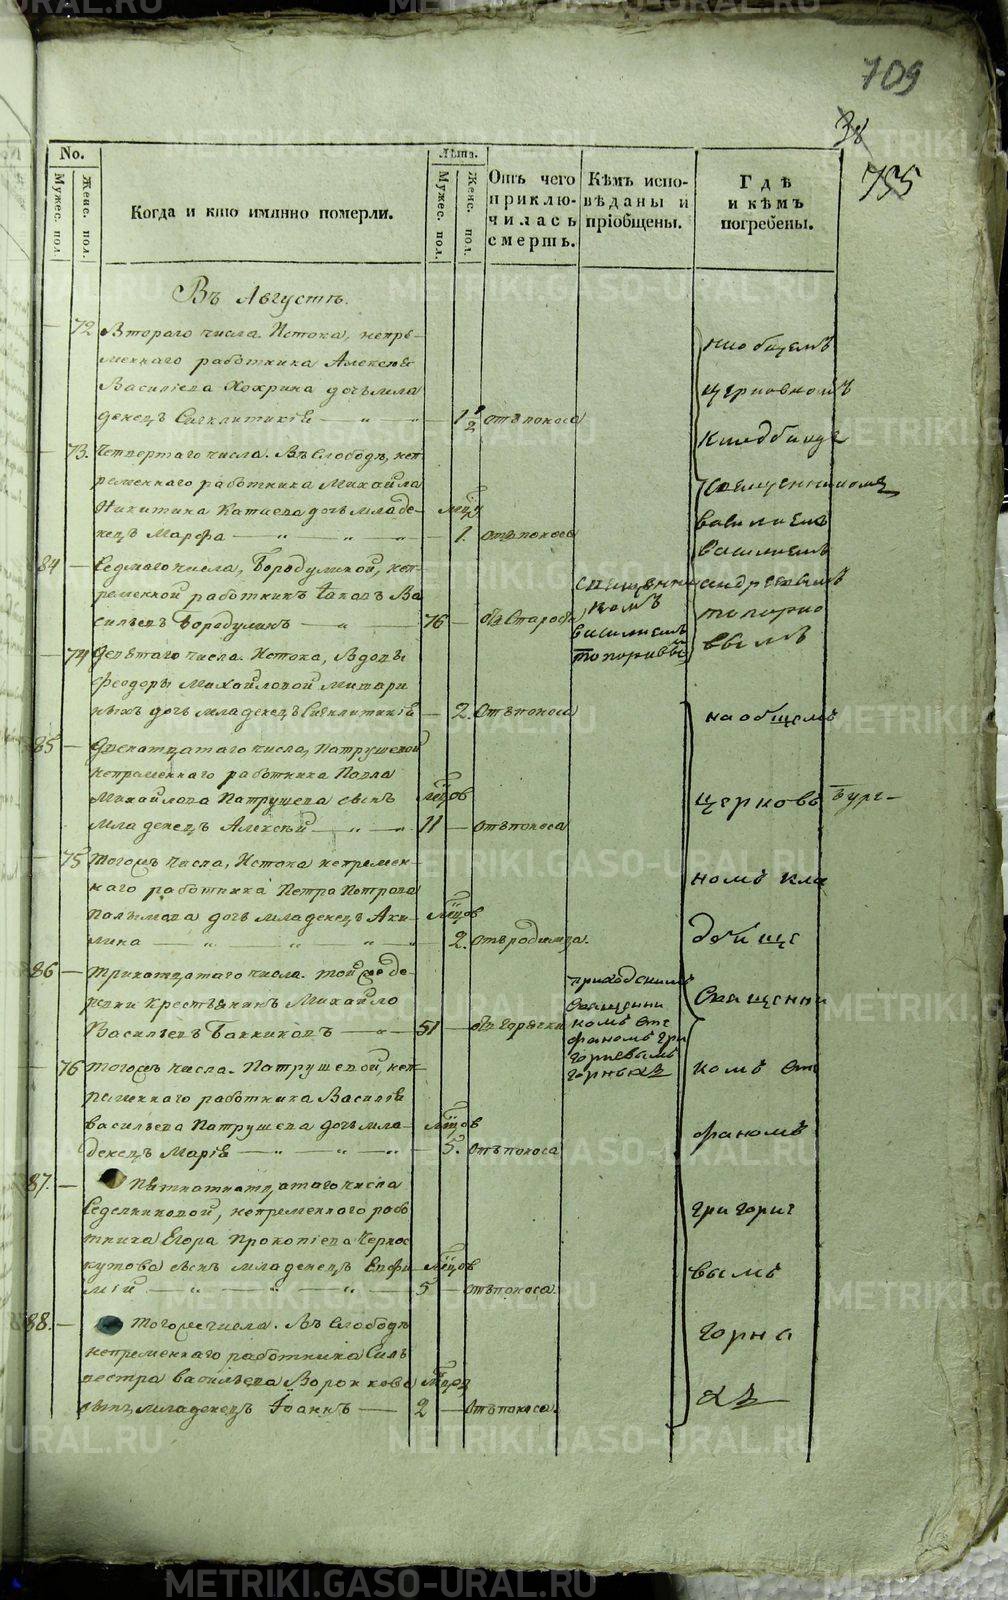 709
38
755
No.
Мужес. пол.
Женс. пол.
Когда и кто имянно померли.
Лѣта.
Мужес. пол.
Женс. пол.
Отъ чего приключилась смерть.
Кѣмъ исповѣданы и прiобщены.
Гдѣ и кѣмъ погребены.
Въ Августѣ.
72 Втораго числа. Истока, непре-
меннаго работника Алексѣя
Васильева Хохрина дочь мла
денецъ Сигклитикiя — 1 1/2 отъ поноса
73. Четвертаго числа. Въ Слободѣ, неп
ременнаго работника Михайла
Никитина дочь младе-
нецъ Марфа — 1. отъ поноса
84 — Седмаго числа, Бородулиной, неп-
ременной работникъ Iаковъ Ва
сильевъ Бородулинъ — 76 — отъ старости
священни
комъ
василиемъ
топорковы
74 Девятаго числа. Истока, вдовы
Феодоры Михайловой
дочь младенецъ Сигклитикiя — 2. отъ поноса
на общемъ
церковномъ
кладбище
священникомъ
василиемъ
Василиемъ
андреевымъ
топорко
вымъ
85 — Двенатцатаго числа, Патрушевой
непременнаго работника Павла
Михайлова Патрушева сынъ
младенецъ Алексѣй — 11 — отъ поноса
75 Тогожъ числа, Истока непремен-
наго работника Петра Петрова
дочь младенецъ Аки-
лина — 2. отъ родимца.
86 — Тринатцатаго числа. Той же де-
ревни крестьянинъ Михайло
Васильевъ Банниковъ — 51 — отъ горячки
приходскимъ
священни
комъ Сте
фаномъ Гри
горьевымъ
76 Тогожъ числа. Патрушевой, неп-
ременнаго работника Василiя
васильева Патрушева дочь мла-
денецъ Марiя — 5. отъ поноса
87. — Пятнатцатаго числа
Седелниковой, непременнаго рабо
тника Егора Прокопiева Черно
кутова сынъ младенецъ Евфи
мiй — 5 — отъ поноса.
88. — Тогоже числа. Въ Слободѣ
непременнаго работника Силь
вестра васильева Воронкова
сынъ младенецъ Iоаннъ — 2 — отъ поноса.
на общемъ
церковь
номъ кла
дбище
Священни
комъ Сте
фаномъ
григорие
вымъ
METRIKI.GASO-URAL.RU